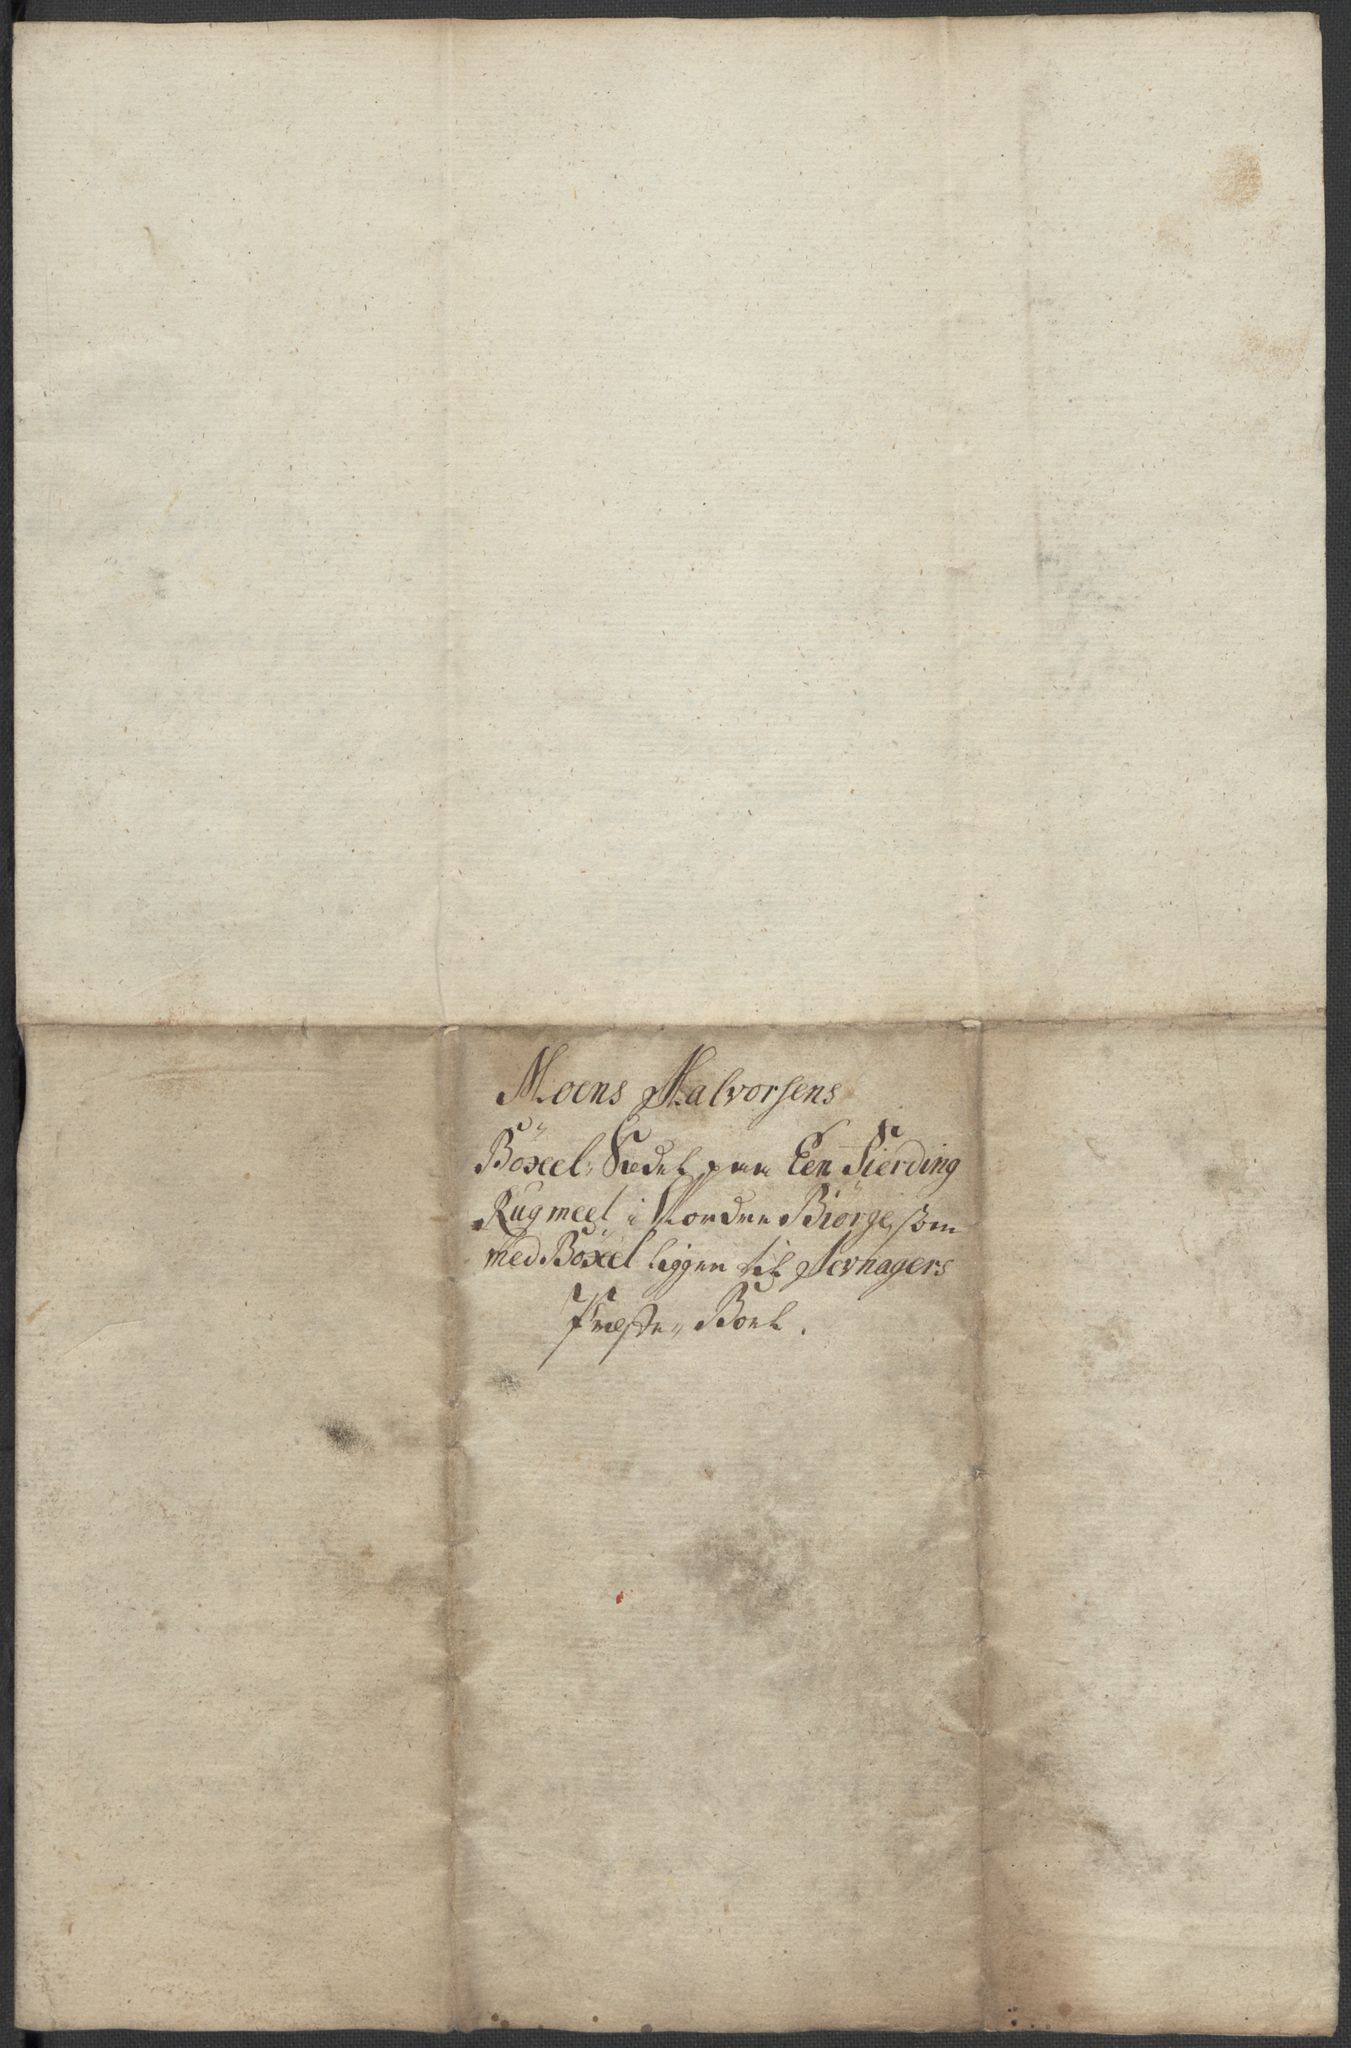 Moens Halvorsens
Böxel, Sedel paa Een Fierding
Rugmeel i Nordre Biörge, som
med Böxel ligger til Jevnagers
Præste, Boel.